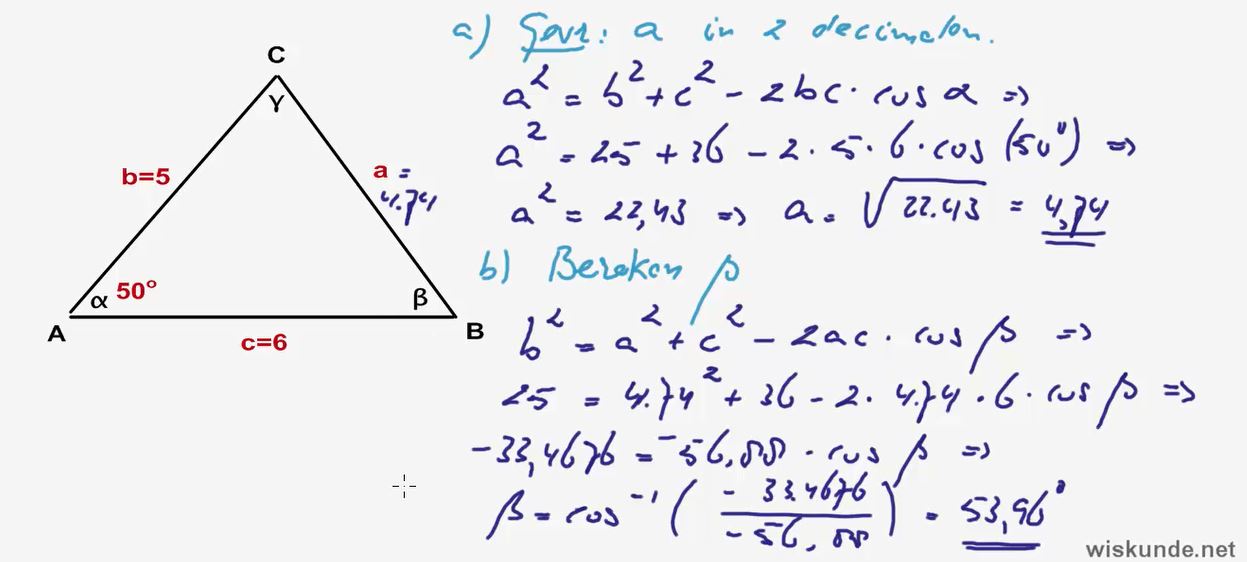 C
γ
b=5
a =
4.74
α 50°
β
A
B
c=6
a) Gevr: a in 2 decimalen.
a² = b² + c² - 2bc · cos α =>
a² = 25 + 36 - 2 · 5 · 6 · cos (50°) =>
a² = 22,43 => a = √22.43 = 4,74
b) Bereken β
b² = a² + c² - 2ac · cos β =>
25 = 4.74² + 36 - 2 · 4.74 · 6 · cos β =>
-33,4676 = -56,88 · cos β =>
β = cos⁻¹ ( -33.4676 / -56,88 ) = 53,96°
wiskunde.net